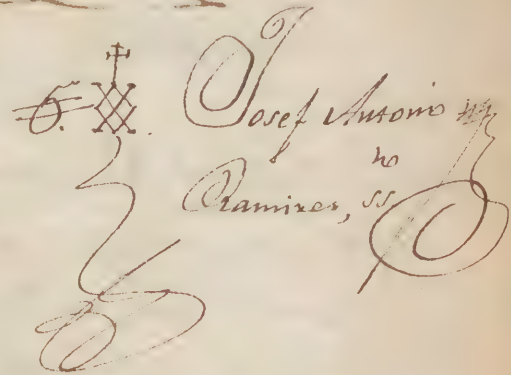 Josef Antonio
no
Ramires, ss.